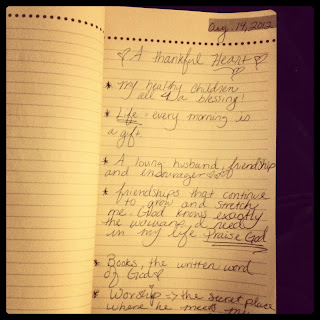 Aug. 14, 2012
A thankful Heart
* my healthy children
all 4 a blessing!
* Life - every morning is
a gift.
* A loving husband, friendship
and incourager
* friendships that continue
to grow and stretch
me. God knows exactly
the women I need
in my life. Praise God
* Books, the written word
of God
* Worship => the secret place
where he meets my